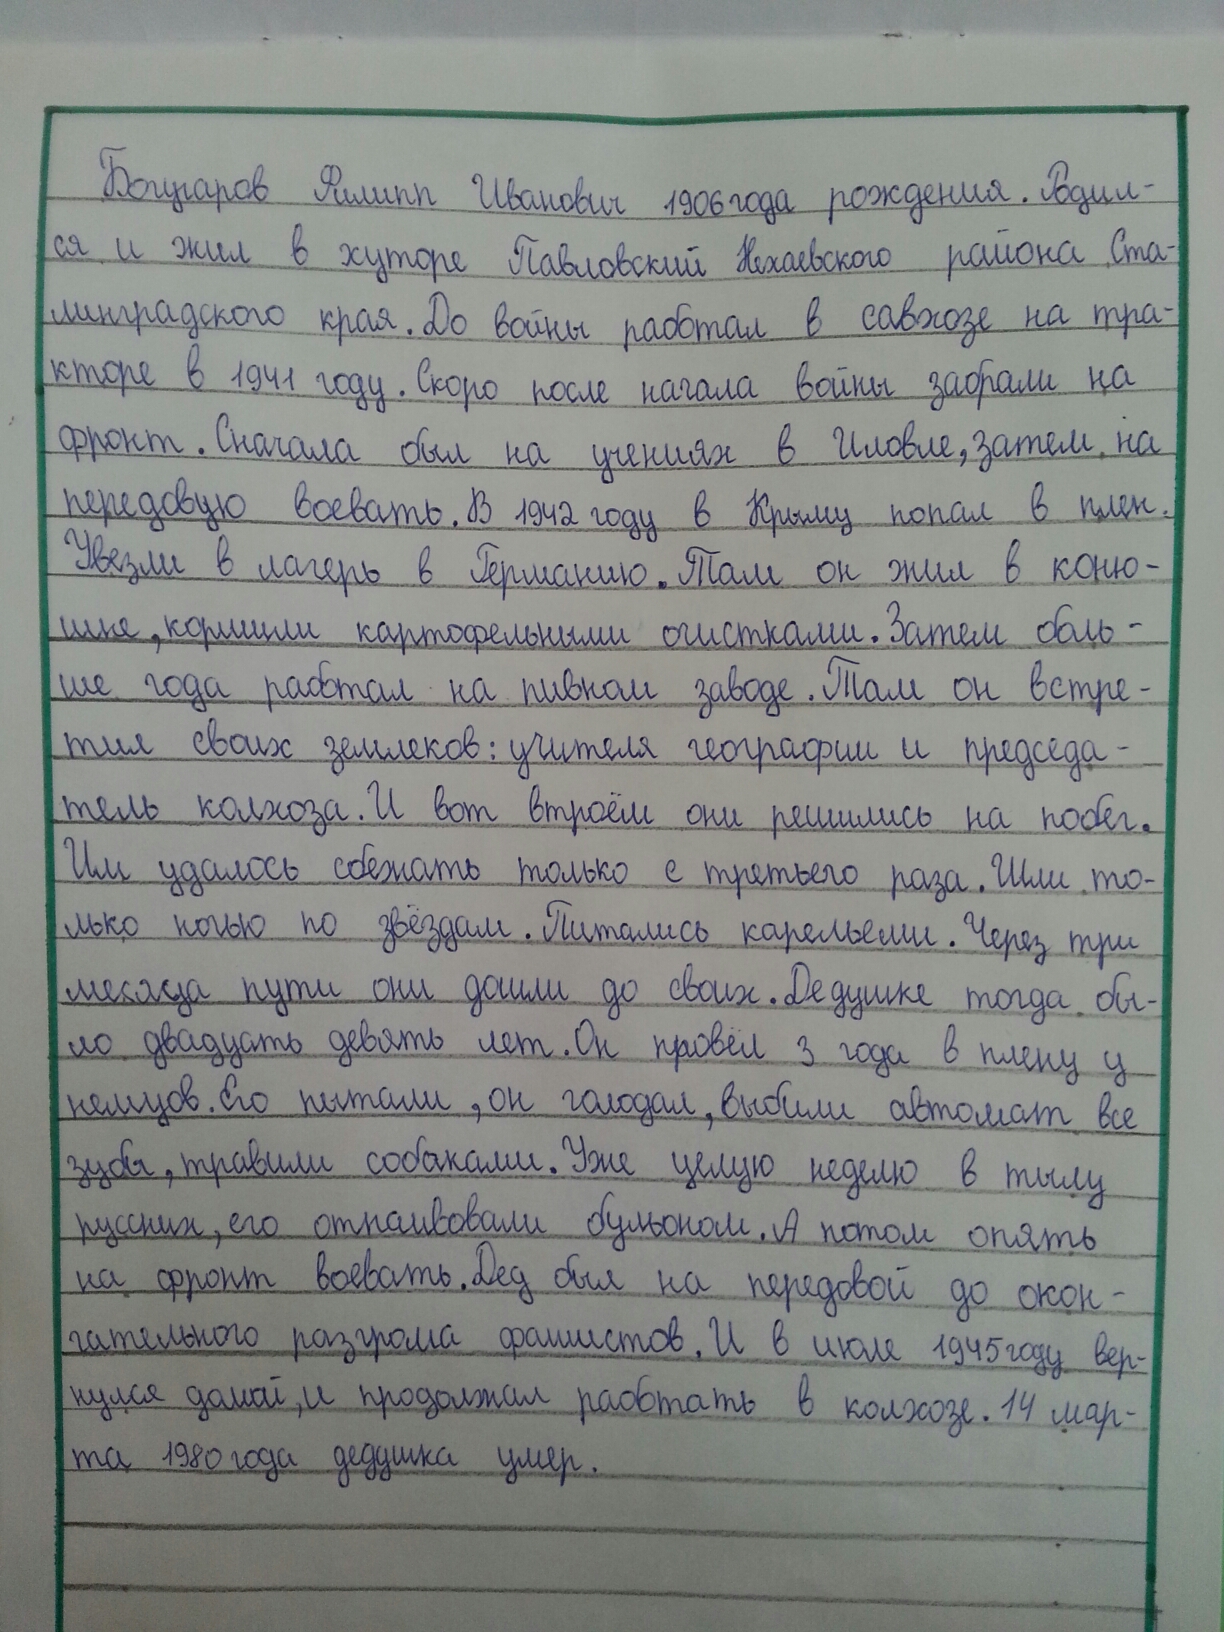 Бочаров Филипп Иванович 1906 года рождения. Родил-
ся и жил в хуторе Павловский Нехаевского района Ста-
линградского края. До войны работал в савхозе на тра-
кторе в 1941 году. Скоро после начала войны забрали на
фронт. Сначала был на учениях в Иловле, затем на
передовую воевать. В 1942 году в Крыму попал в плен.
Увезли в лагерь в Германию. Там он жил в коню-
шне, кормили картофельными очистками. Затем боль-
ше года работал на пивном заводе. Там он встре-
тил своих землеков: учителя географии и председа-
тель колхоза. И вот втроём они решились на побег.
Им удалось сбежать только с третьего раза. Шли то-
лько ночью по звёздам. Питались карельеми. Через три
месяца пути они дошли до своих. Дедушке тогда бы-
ло двадцать девять лет. Он провёл 3 года в плену у
немцов. Его пытали, он голодал, выбили автомат все
зубы, травили собаками. Уже целую неделю в тылу
русских, его отпаивовали бульоном. А потом опять
на фронт воевать. Дед был на передовой до окон-
чательного разгрома фашистов. И в июле 1945 году вер-
нулся домой, и продолжал работать в колхозе. 14 мар-
та 1980 года дедушка умер.